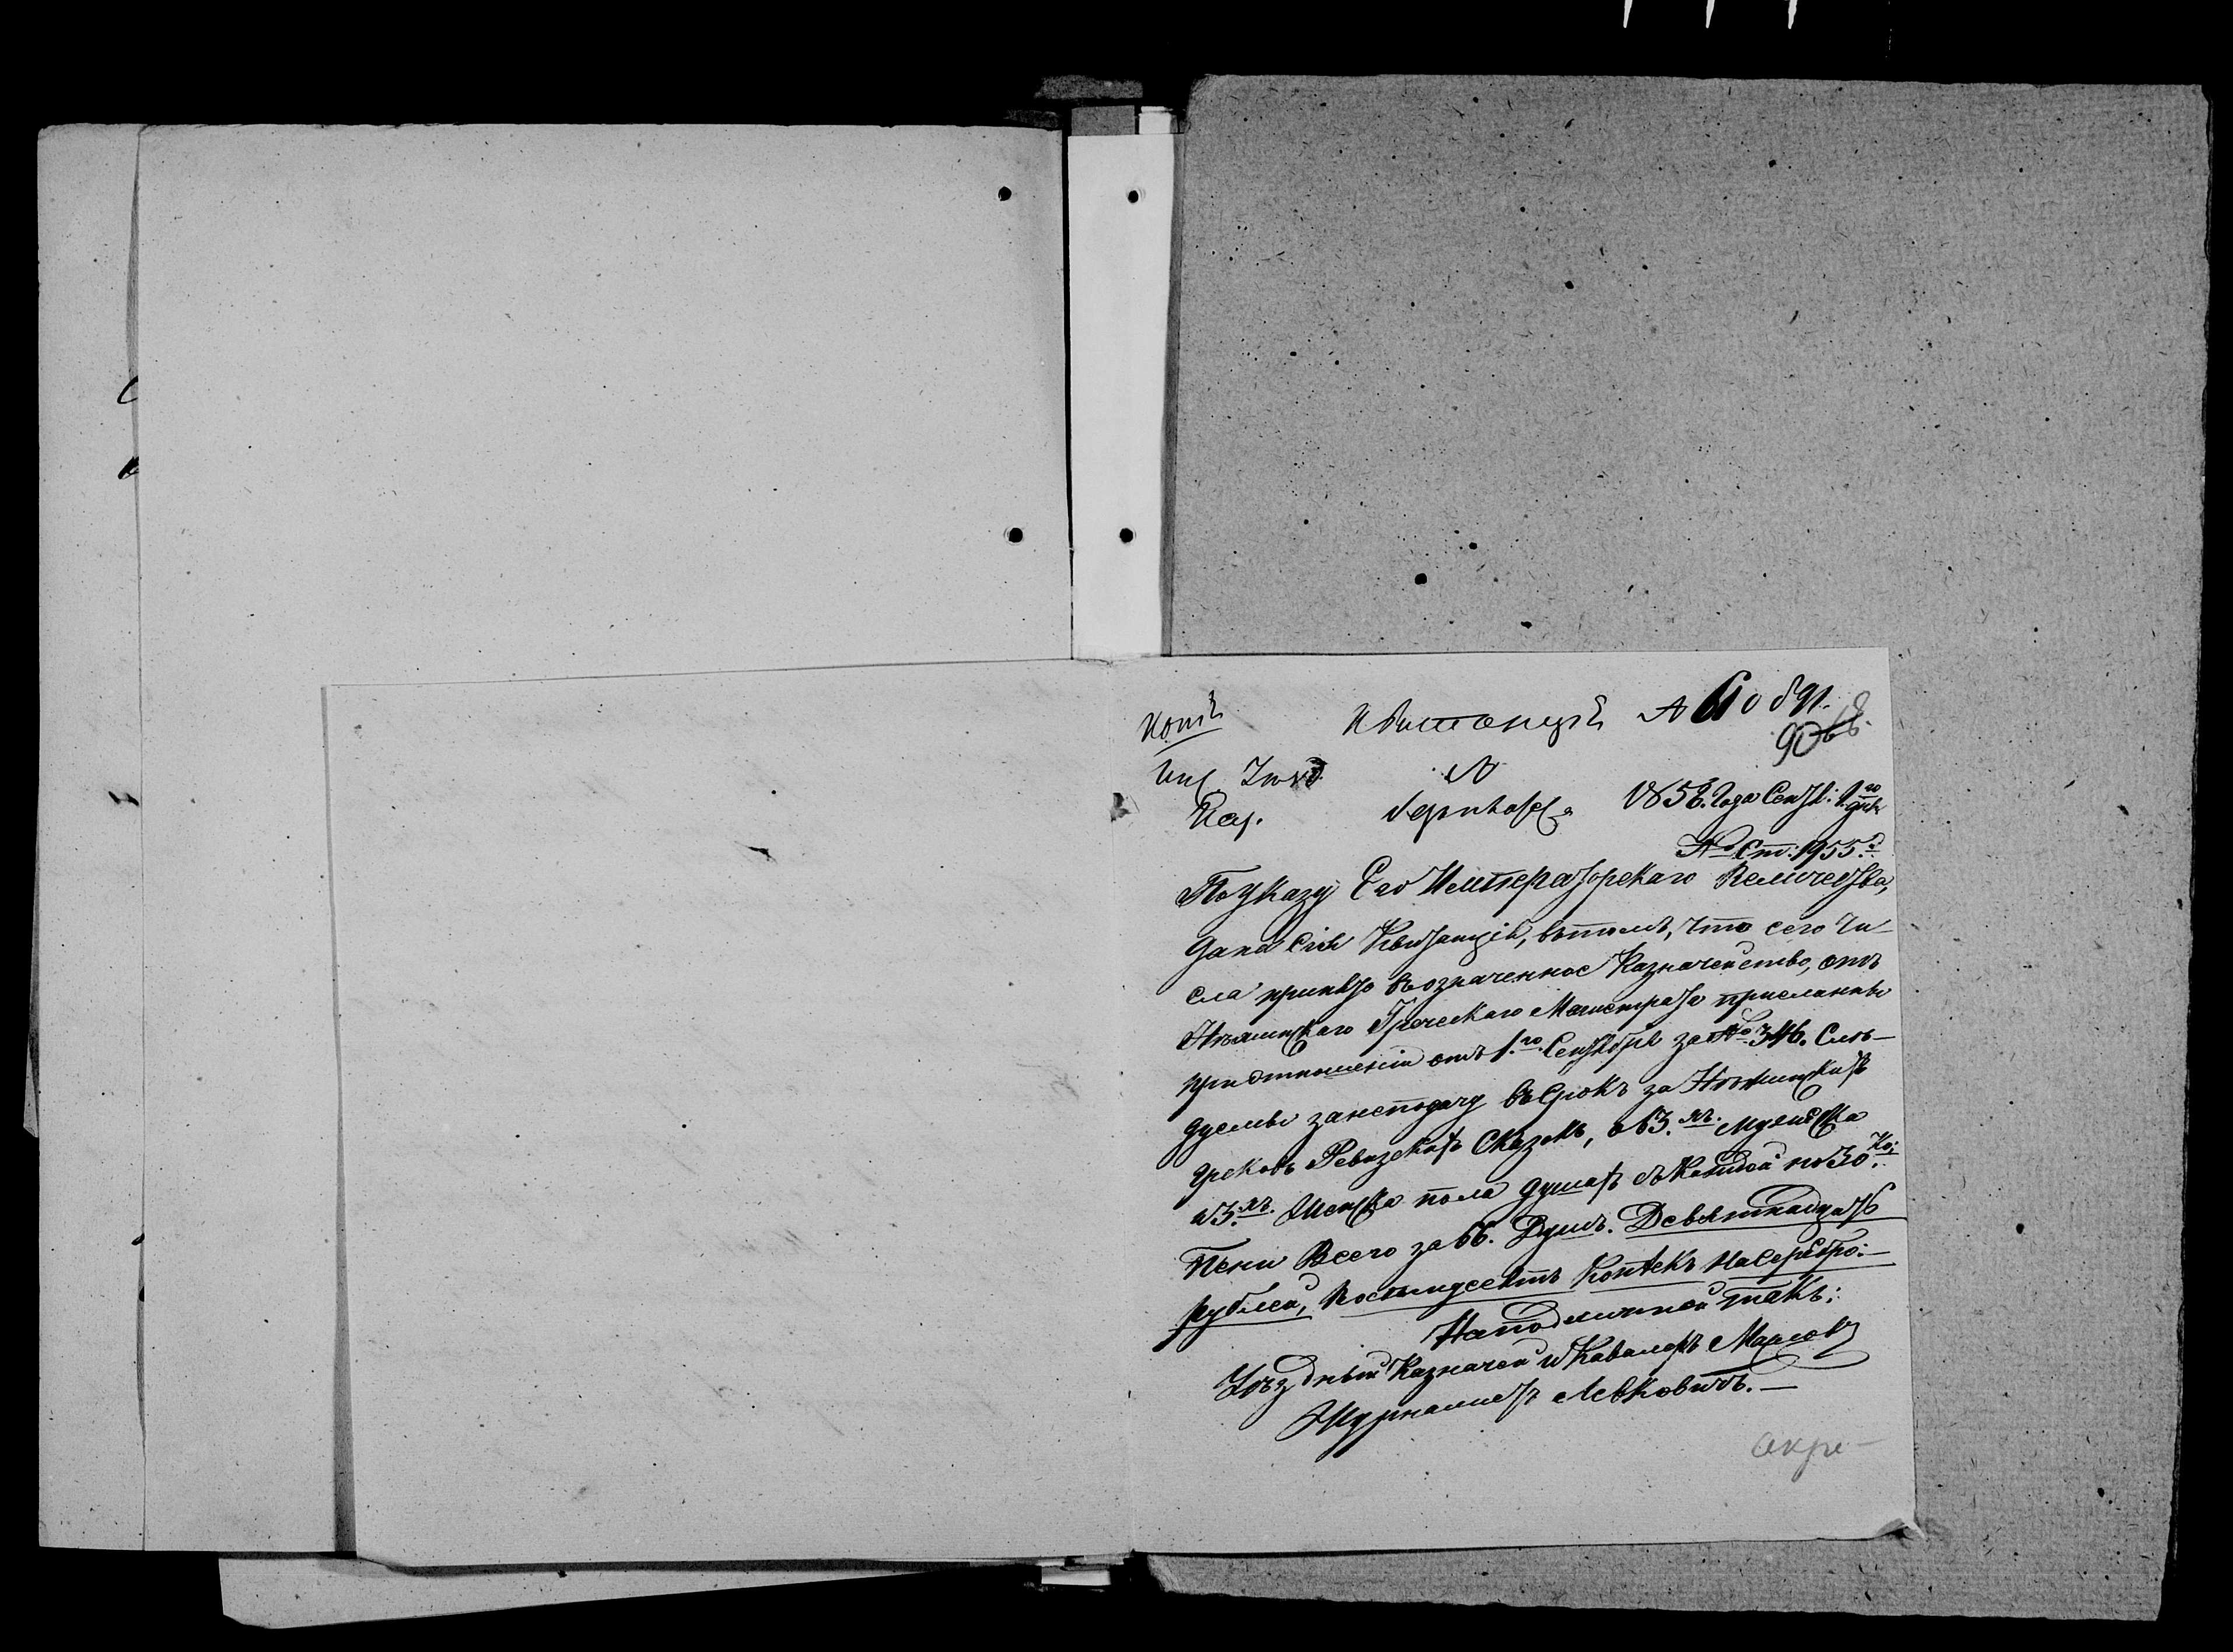 Копія
Квитанція
90
Казн.
Черниговск.
185 . Года Сентяб: 1го дня
№ Ст: 1955.
По Указу Его Императорскаго Величества,
дана сія Квитанція, въ томъ, что сего чи
сла принято въ означенное Казначейство, отъ
Нѣжинскаго Греческаго Магистрата присланные
при отношеніи отъ 1.го Сентября за № 346. Слѣ-
дуемые за неподачу въ срокъ за Нѣжинскихъ
грековъ Ревизскихъ Сказокъ, о 63.хъ мужеска
и 3.хъ Женска пола душахъ съ каждой по 30 Ко:
Пени Всего за 66. Душъ. Девятнадцать
рублей, Восемьдесятъ Копѣекъ на серебро:—
На подлинной такъ:
Уѣздный Казначей и Кавалеръ Маслов
Журналистъ Левковичъ.—